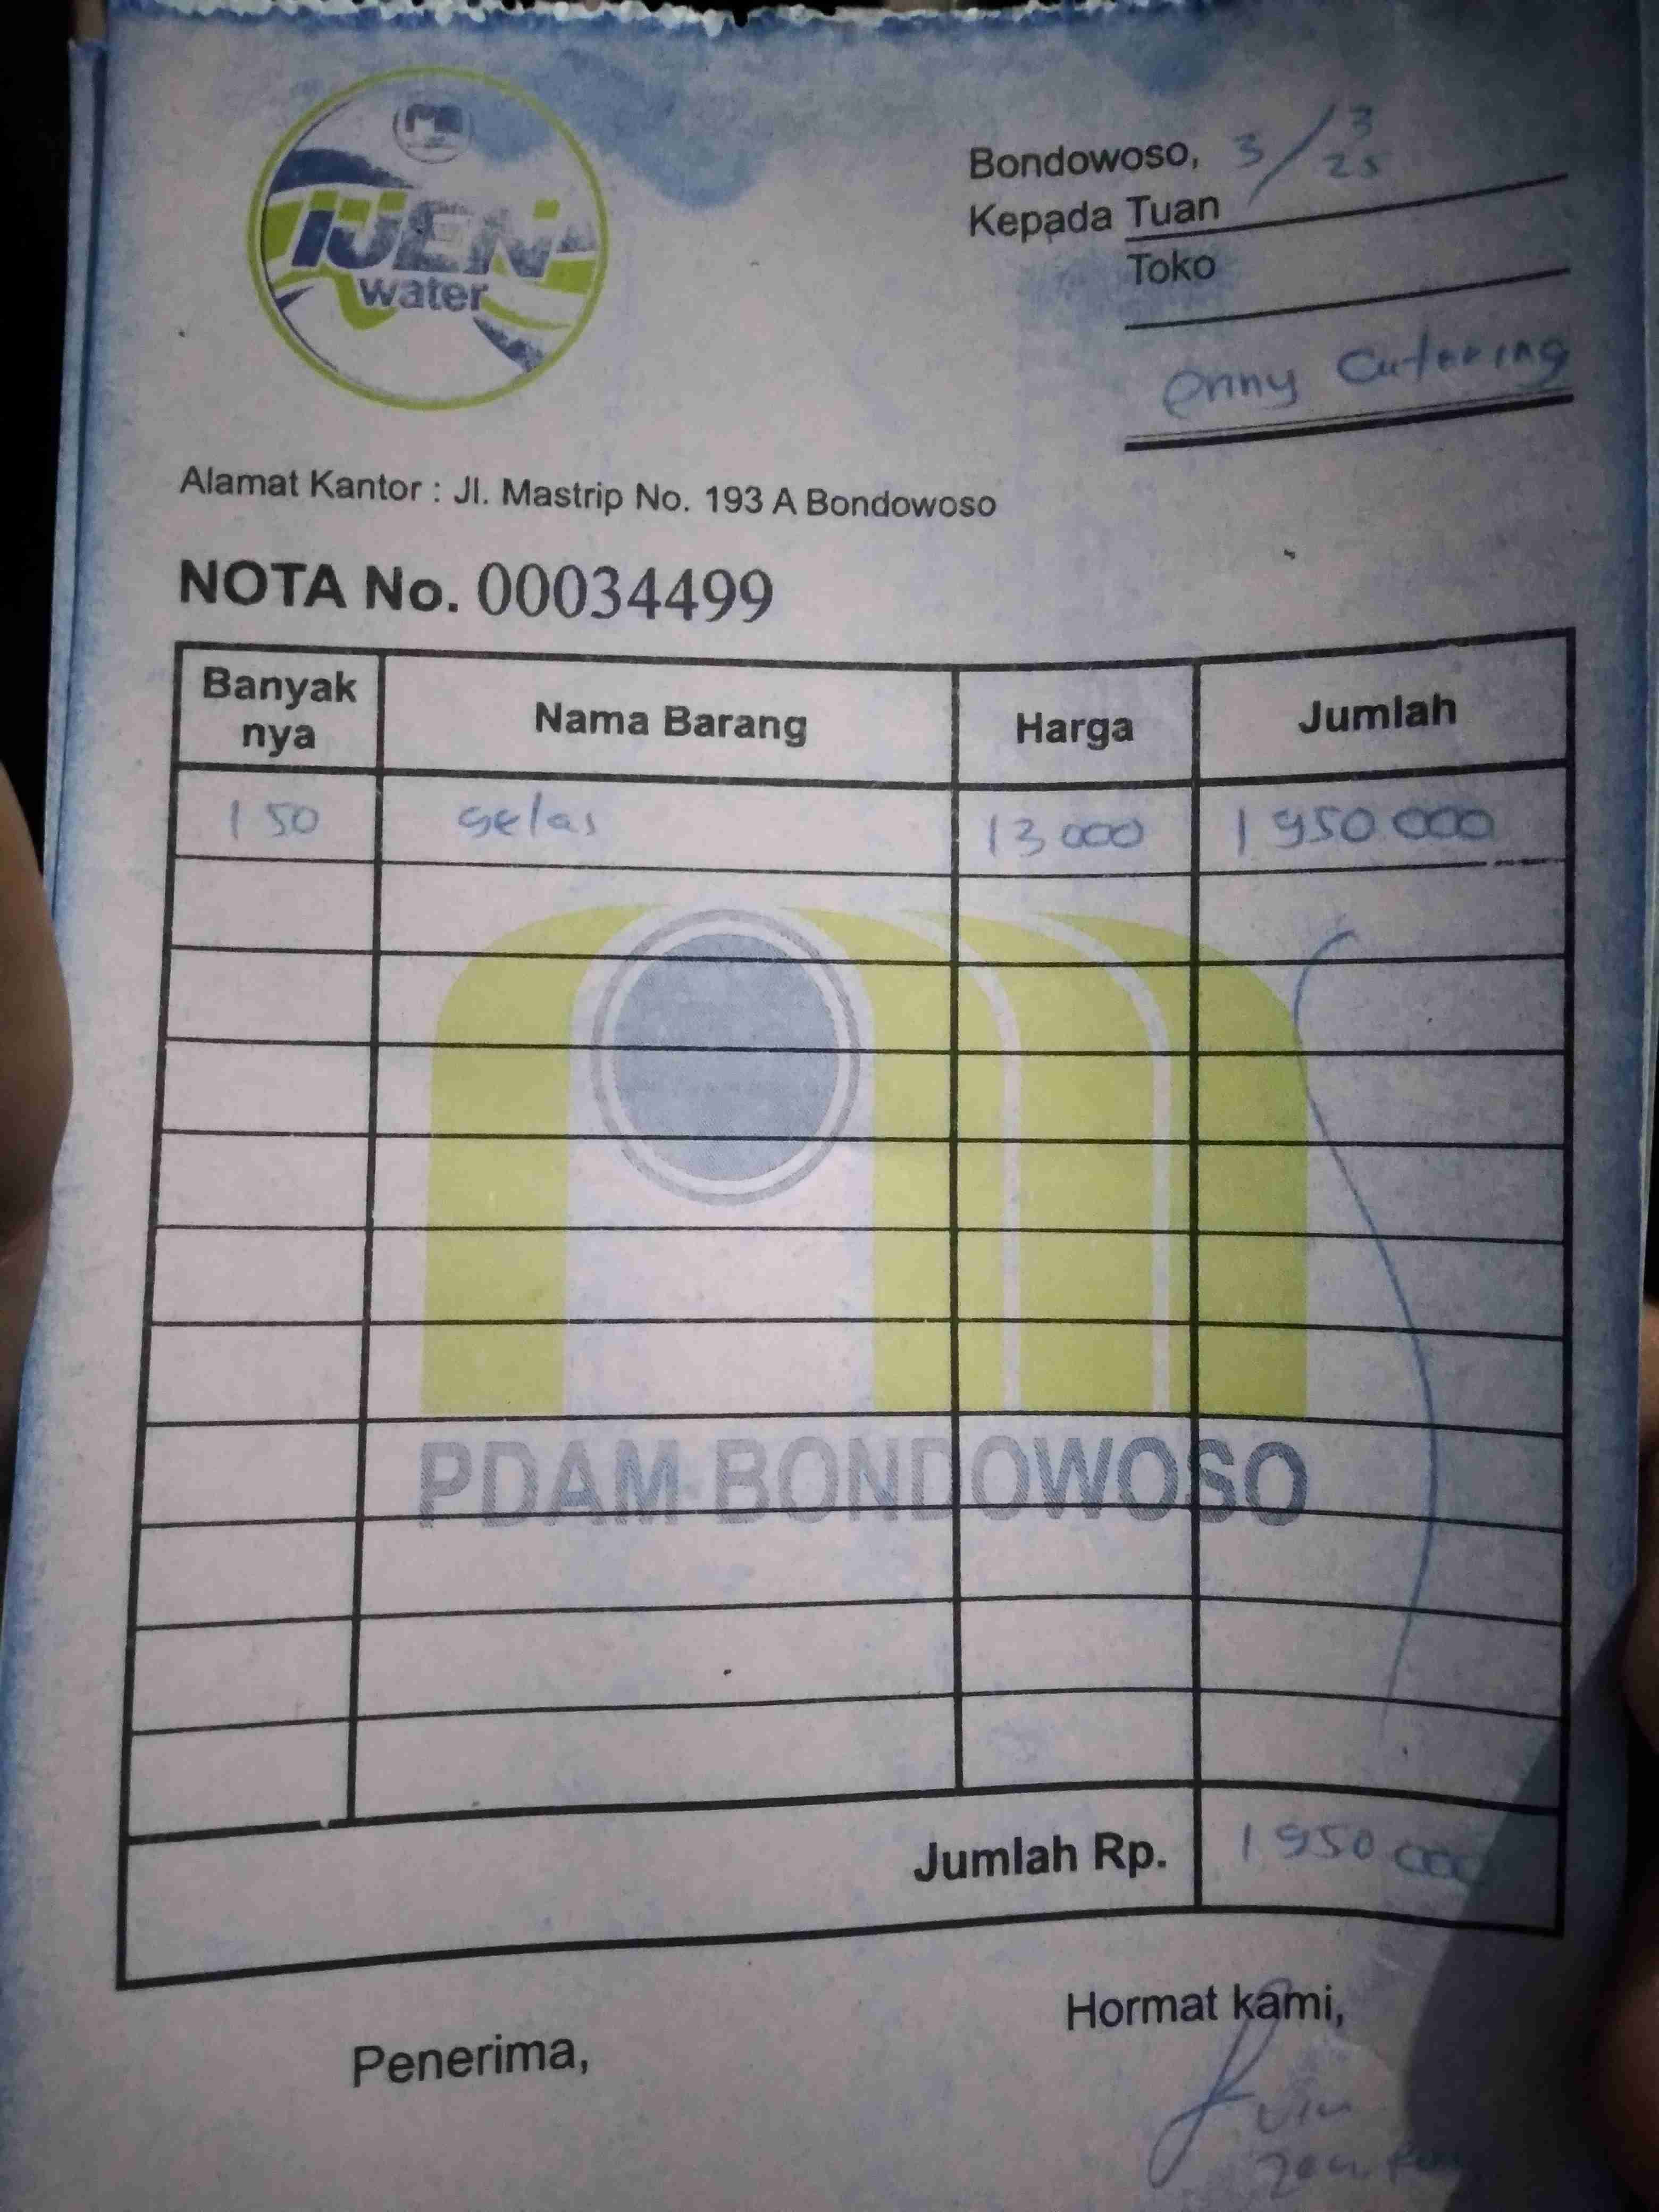 IJEN
water
Bondowoso, 3/3 25
Kepada Tuan
Toko
enny Catering
Alamat Kantor : Jl. Mastrip No. 193 A Bondowoso
NOTA No. 00034499
Banyak nya Nama Barang Harga Jumlah
150 gelas 13 000 1 950 000
PDAM BONDOWOSO
Jumlah Rp. 1 950 000
Hormat kami,
Penerima,